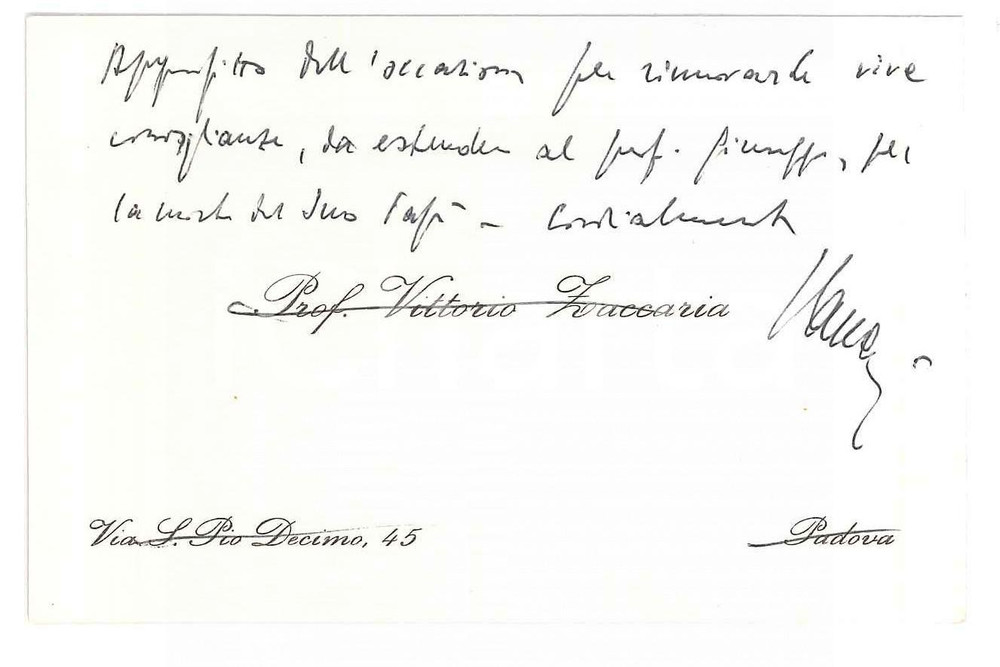 Approfitto dell'occasione per rinnovarLe vive
condoglianze, da estendere al prof. Giuseppe, per
la morte del Suo Papà - Cordialmente
Prof. Vittorio Zaccaria
Via S. Pio Decimo, 45
Padova